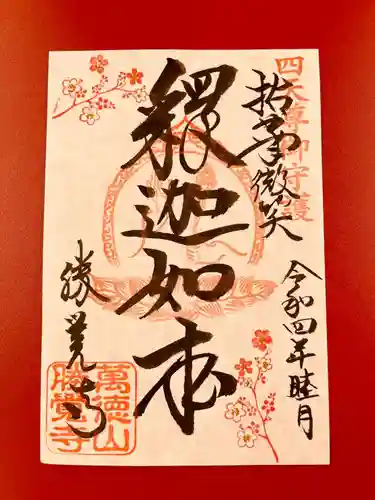 四天尊御守護
拈華微笑
釋迦如来
令和四年睦月
勝覚寺
萬徳山
勝覺寺